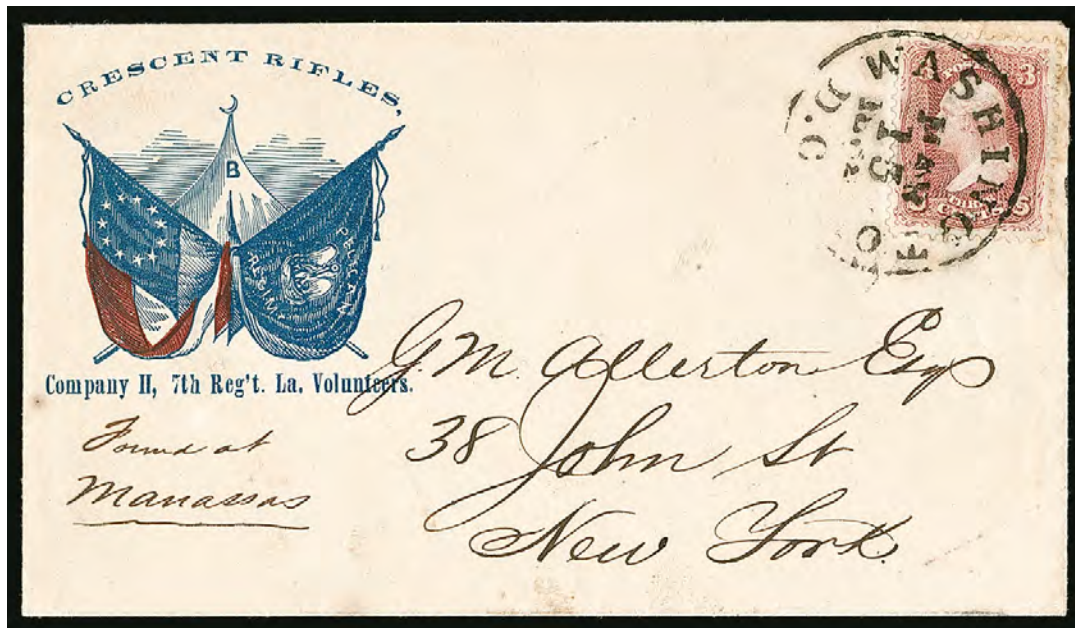 CRESCENT RIFLES,
B
PELICAN
REGIM'T
Company H, 7th Reg't. La. Volunteers.
Found at
Manassas
WASHINGTON D.C.
MAY
15
3
CENTS
G. M. Allerton Esqr
38 John St
New York